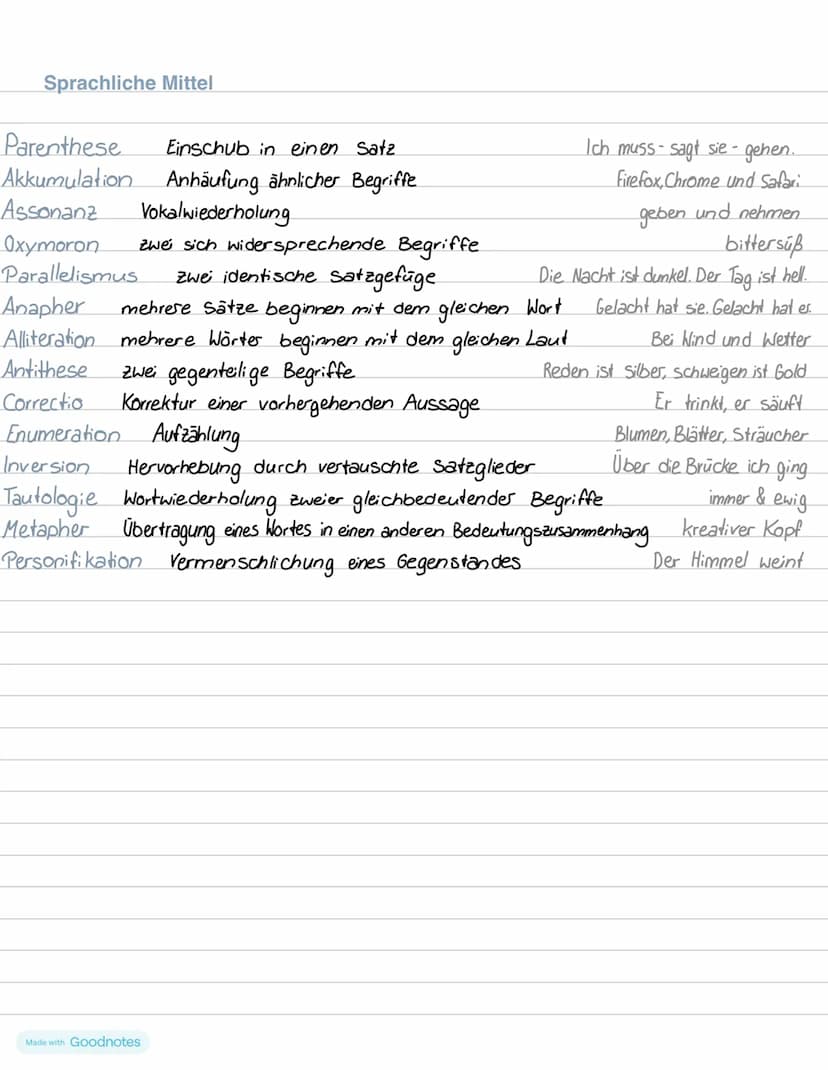 Sprachliche Mittel
Parenthese Einschub in einen Satz Ich muss - sagt sie - gehen.
Akkumulation Anhäufung ähnlicher Begriffe Firefox, Chrome und Safari
Assonanz Vokalwiederholung geben und nehmen
Oxymoron zwei sich widersprechende Begriffe bittersüß
Parallelismus zwei identische Satzgefüge Die Nacht ist dunkel. Der Tag ist hell.
Anapher mehrere Sätze beginnen mit dem gleichen Wort Gelacht hat sie. Gelacht hat er.
Alliteration mehrere Wörter beginnen mit dem gleichen Laut Bei Wind und Wetter
Antithese zwei gegenteilige Begriffe Reden ist Silber, schweigen ist Gold
Correctio Korrektur einer vorhergehenden Aussage Er trinkt, er säuft
Enumeration Aufzählung Blumen, Blätter, Sträucher
Inversion Hervorhebung durch vertauschte Satzglieder Über die Brücke ich ging
Tautologie Wortwiederholung zweier gleichbedeutender Begriffe immer & ewig
Metapher Übertragung eines Wortes in einen anderen Bedeutungszusammenhang kreativer Kopf
Personifikation Vermenschlichung eines Gegenstandes Der Himmel weint
Made with Goodnotes